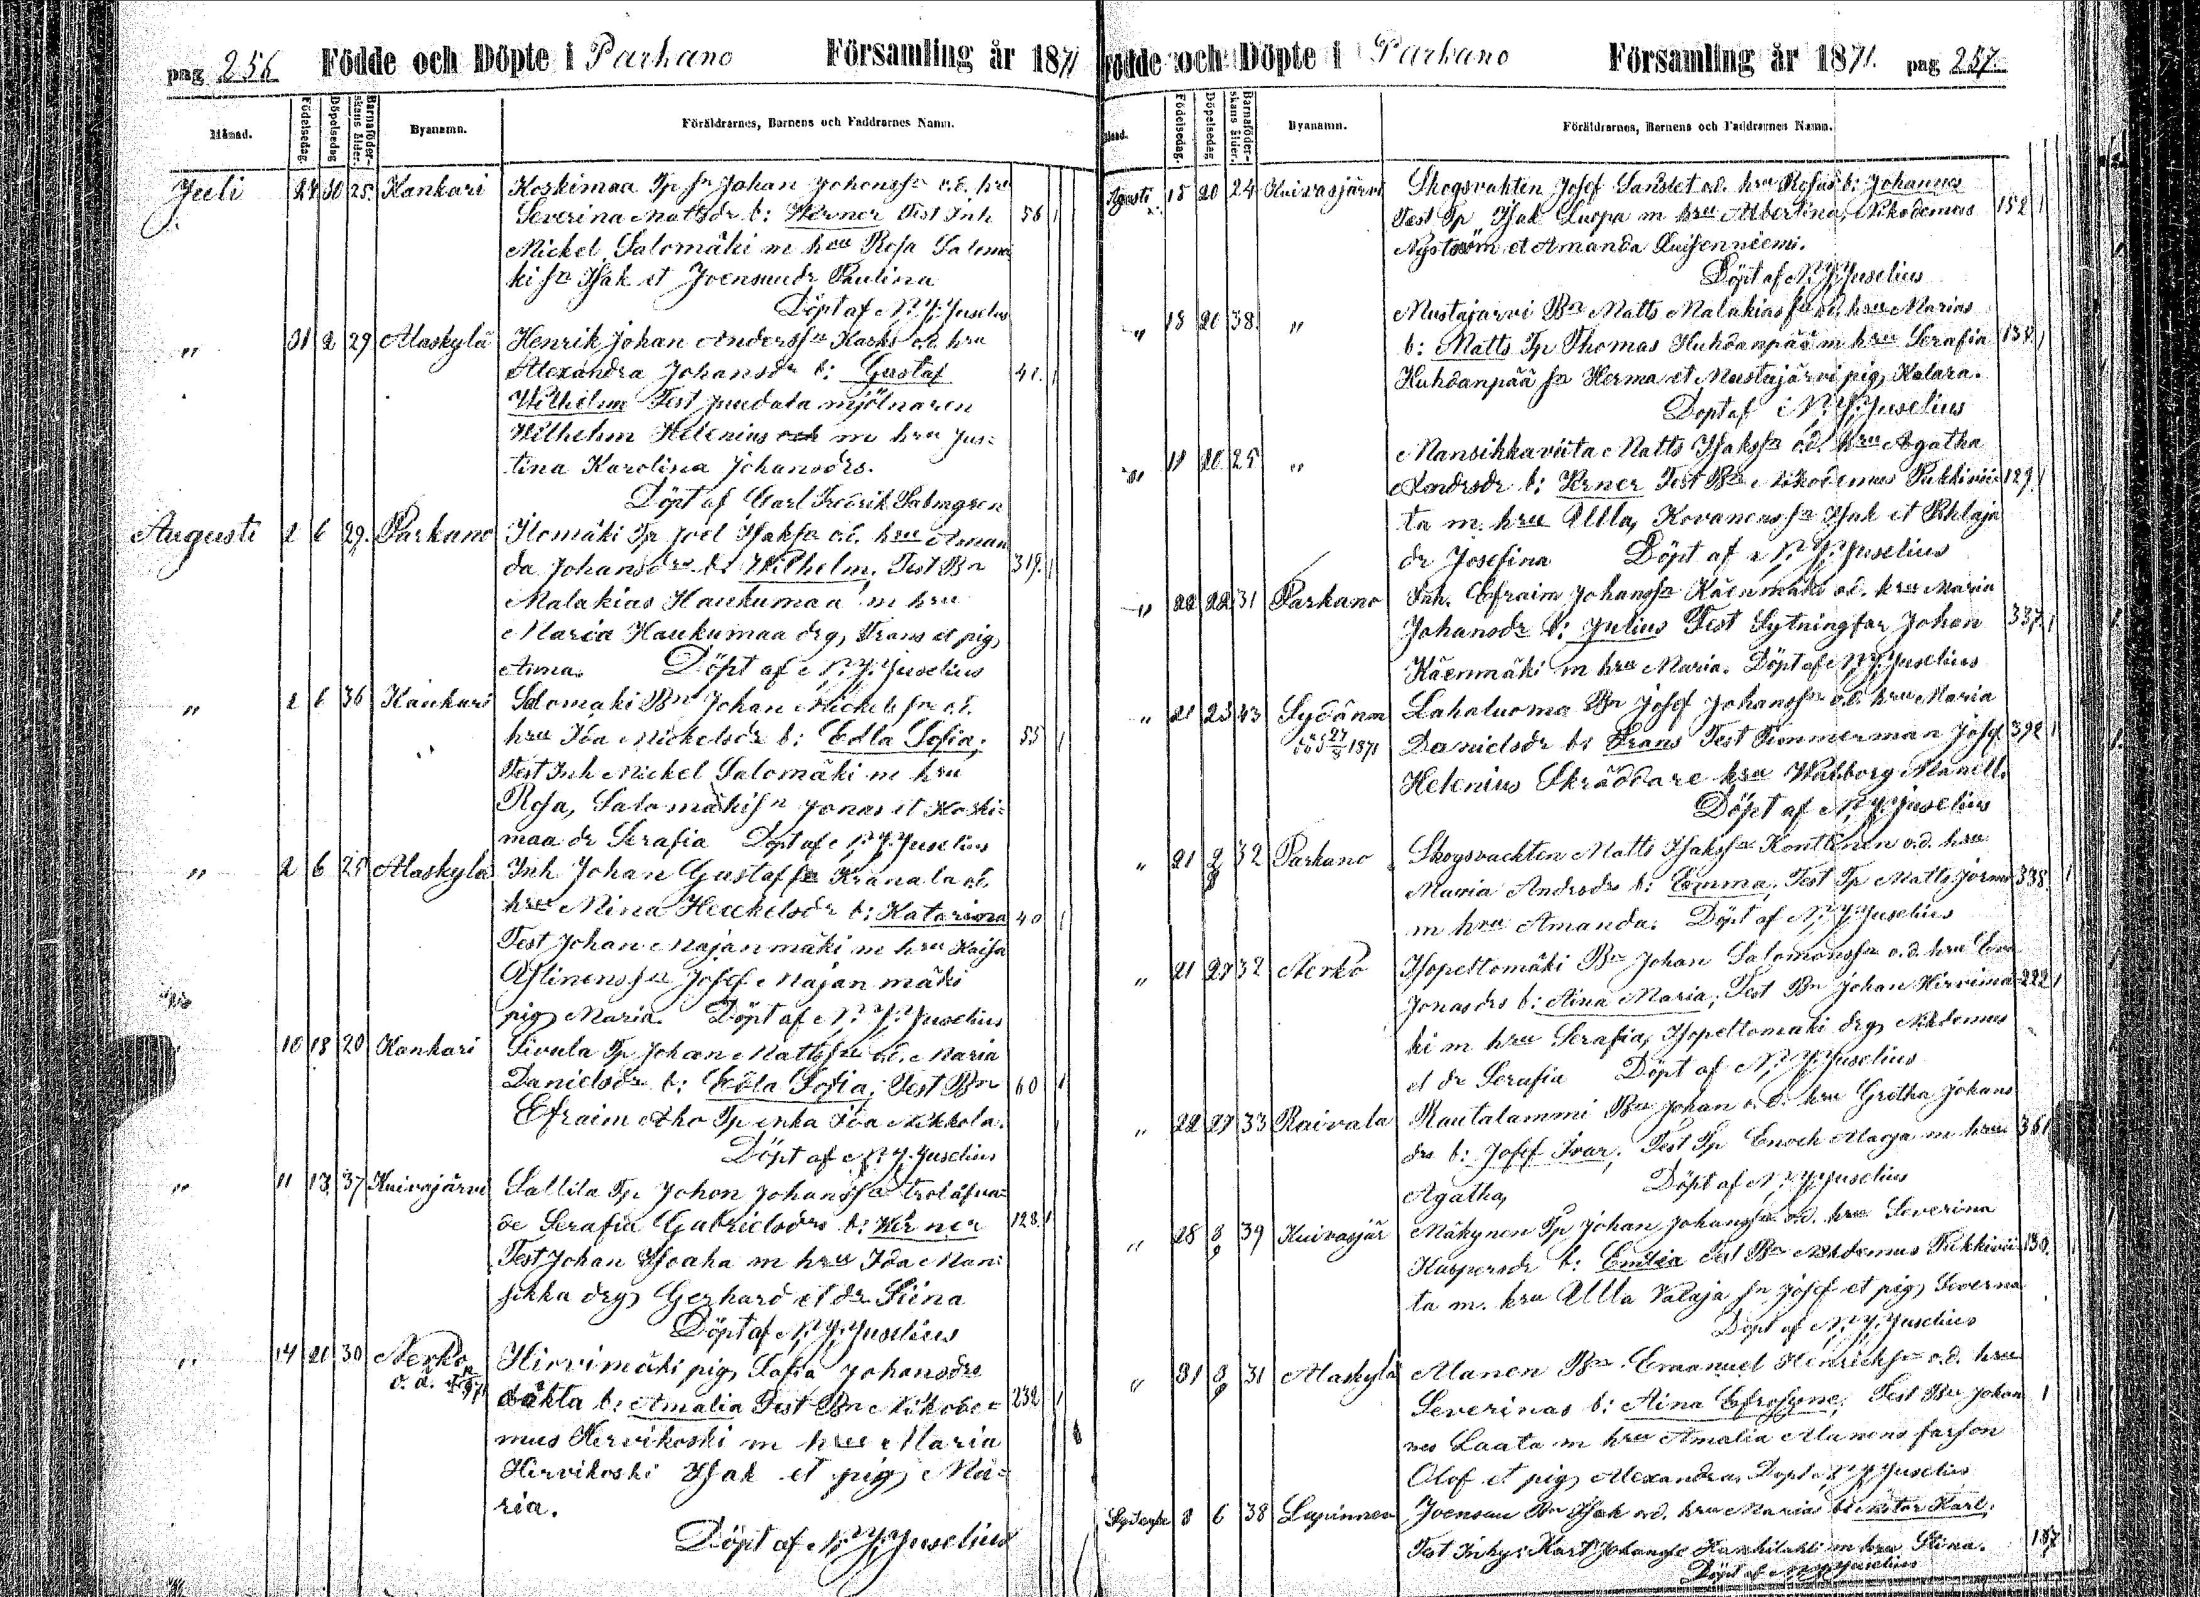 pag 256 Födde och Döpte i Parkano Församling år 1871
Månad. Födelsedag. Döpelsedag Barnaföderskans ålder. Byanamn. Föräldrarnes, Barnens och Faddrarnes Namn.
Juli 24 30 25. Kankari Koskimaa Tp sn Johan Johanssn o.d. hru
Severina Mattsdr b: Werner Test Inh 56 1
Mickel Salomäki m hru Rosa Salomä
ki sn Isak et Joensuudr Paulina
Döpt af N. J. Juselius
" 31 2 29 Alaskylä Henrik Johan Anderssn Koski o.d. hru
Alexandra Johansdr b: Gustaf 41. 1
Wilhelm Test mjölnaren
Wilhelm Helenius och m hru Jus=
tina Karolina Johansdrs.
Döpt af Carl Fredrik Salmgren
Augusti 2 6 29. Parkano Ilomäki Tp Joel Isaksn o.d. hru Aman
da Johansdrs b: Wilhelm, Test Bn 319. 1
Malakias Haukumaa m hru
Maria Haukumaa drg, Frans et pig,
Anna. Döpt af N. J. Juselius
" 2 6 36 Kankari Salomäki Bn Johan Mickelssn o.d.
hru Ida Mickelsdr b: Edla Sofia; 55 1
Test Inh Mickel Salomäki m hru
Rosa, Salomäkisn Jonas et Koski=
maa dr Serafia Döpt af N. J. Juselius
" 2 6 25 Alaskylä Inh Johan Gustafsn Kranala o.d.
hru Mina Henrikelsdr b: Katarina 40 1
Test Johan Majanmäki m hru Kaisa
Josef Majanmäki
pig, Maria. Döpt af N. J. Juselius
10 13 20 Kankari Sivula Tp Johan Mattssn o.d. Maria
Danielsdr b: Edla Sofia; Test Bn 60 1
Efraim Aho Tp enka Ida Mikkola.
Döpt af N. J. Juselius
" 11 13 37 Kuivajärvi Sallila Tp Johan Johanssn trolåfva=
de Serafia Gabrielsdrs b: Werner 128. 1
Test Johan Isoaha m hru Ida Man:
sikka drg, Gerhard et dr Siina
Döpt af N. J. Juselius
" 14 21 30 Nerkö Hirvimäki pig, Sofia Johansdrs
o. ä. b: Amalia Test Bn Nikode= 232 1
mus Hirvikoski m hru Maria
Hirvikoski Isak et pig, Ma=
ria.
Döpt af N. J. Juselius
Födde och Döpte i Parkano Församling år 1871. pag 257.
Månad. Födelsedag. Döpelsedag Barnaföderskans ålder. Byanamn. Föräldrarnes, Barnens och Faddrarnes Namn.
Agusti 15 20 24 Kuivasjärvi Skogsvakten Josef Sanslet o.d. hru Rosas b: Johannes
Test Tp Isak Luopa m hru Albertina, Nikodemus 152 1
Nyström et Amanda Luisenniemi.
Döpt af N. J. Juselius
" 18 20 38. " Mustajärvi Bn Matts Malakiassn o.d. hru Marias
b: Matts Tp Thomas Huhdanpää m hru Serafia 138. 1
Huhdanpää sn Herma et Mustajärvi pig, Kalara.
Döpt af N. J. Juselius
" 18 20 25 " Mansikkaviita Matts Isakssn o.d. hru Agatha
Andrsdr b: Verner Test Bn Nikodemus Pukkivii= 129. 1
ta m. hru Ulla, Kovanenssn Isak et Pihlaja
dr Josefina Döpt af N. J. Juselius
" 22 22 31 Parkano Inh. Efraim Johanssn Käenmäki o.d. hru Maria
Johansdr b: Julius Test Sytningfar Johan 337. 1
Käenmäki m hru Maria. Döpt af N. J. Juselius
" 21 23 43 Sydänm Lahaluoma Bn Josef Johanssn o.d. hru Maria
död 27/8 1871 Danielsdr b: Frans Test Timmerman Josef 392 1
Helenius Skräddare hru Walborg Manell.
Döpt af N. J. Juselius
" 21 32 Parkano Skogsvackten Matts Isakssn Konttinen o.d. hru
Maria Andrsdr b: Emma, Test Tp Matts Jormo 338. 1
m hru Amanda. Döpt af N. J. Juselius
" 21 27 32 Nerkö Isopeltomäki Bn Johan Salomonssn o.d. hru Eva
Jonasdrs b: Aina Maria; Test Bn Johan Hirvimä= 222 1
ki m hru Serafia, Isopeltomäki drg, Nikdemus
et dr Serafia Döpt af N. J. Juselius
" 22 27 33 Raivala Rautalammi Bn Johan o.d. hru Gretha Johans
drs b: Josef Ivar; Test Tp Enoch Alaoja m hru 361
Agatha, Döpt af N. J. Juselius
" 28 3/9 39 Kuivasjär Mäkynen Tp Johan Johanssn o.d. hru Severina
Kaspersdr b: Emilia Test Bn Nikdemus Pukkivii= 130. 1
ta m. hru Ulla Valaja sn Josef et pig, Severna
Döpt af N. J. Juselius
" 31 3/9 31 Alaskylä Alanen Bn Emanuel Henrickssn o.d. hru
Severinas b: Aina Efrosyne; Test Bn Johan 1 1
nes Laata m hru Amalia Alanens farson
Olof et pig, Alexandra. Döpt af N. J. Juselius
3 6 38 Lapinnen Joensuu Bn Isak o.d. hru Marias b: Karl,
Test Inhys: Karl Johanssn m hru Stina. 187 1
Döpt af N J Juselius